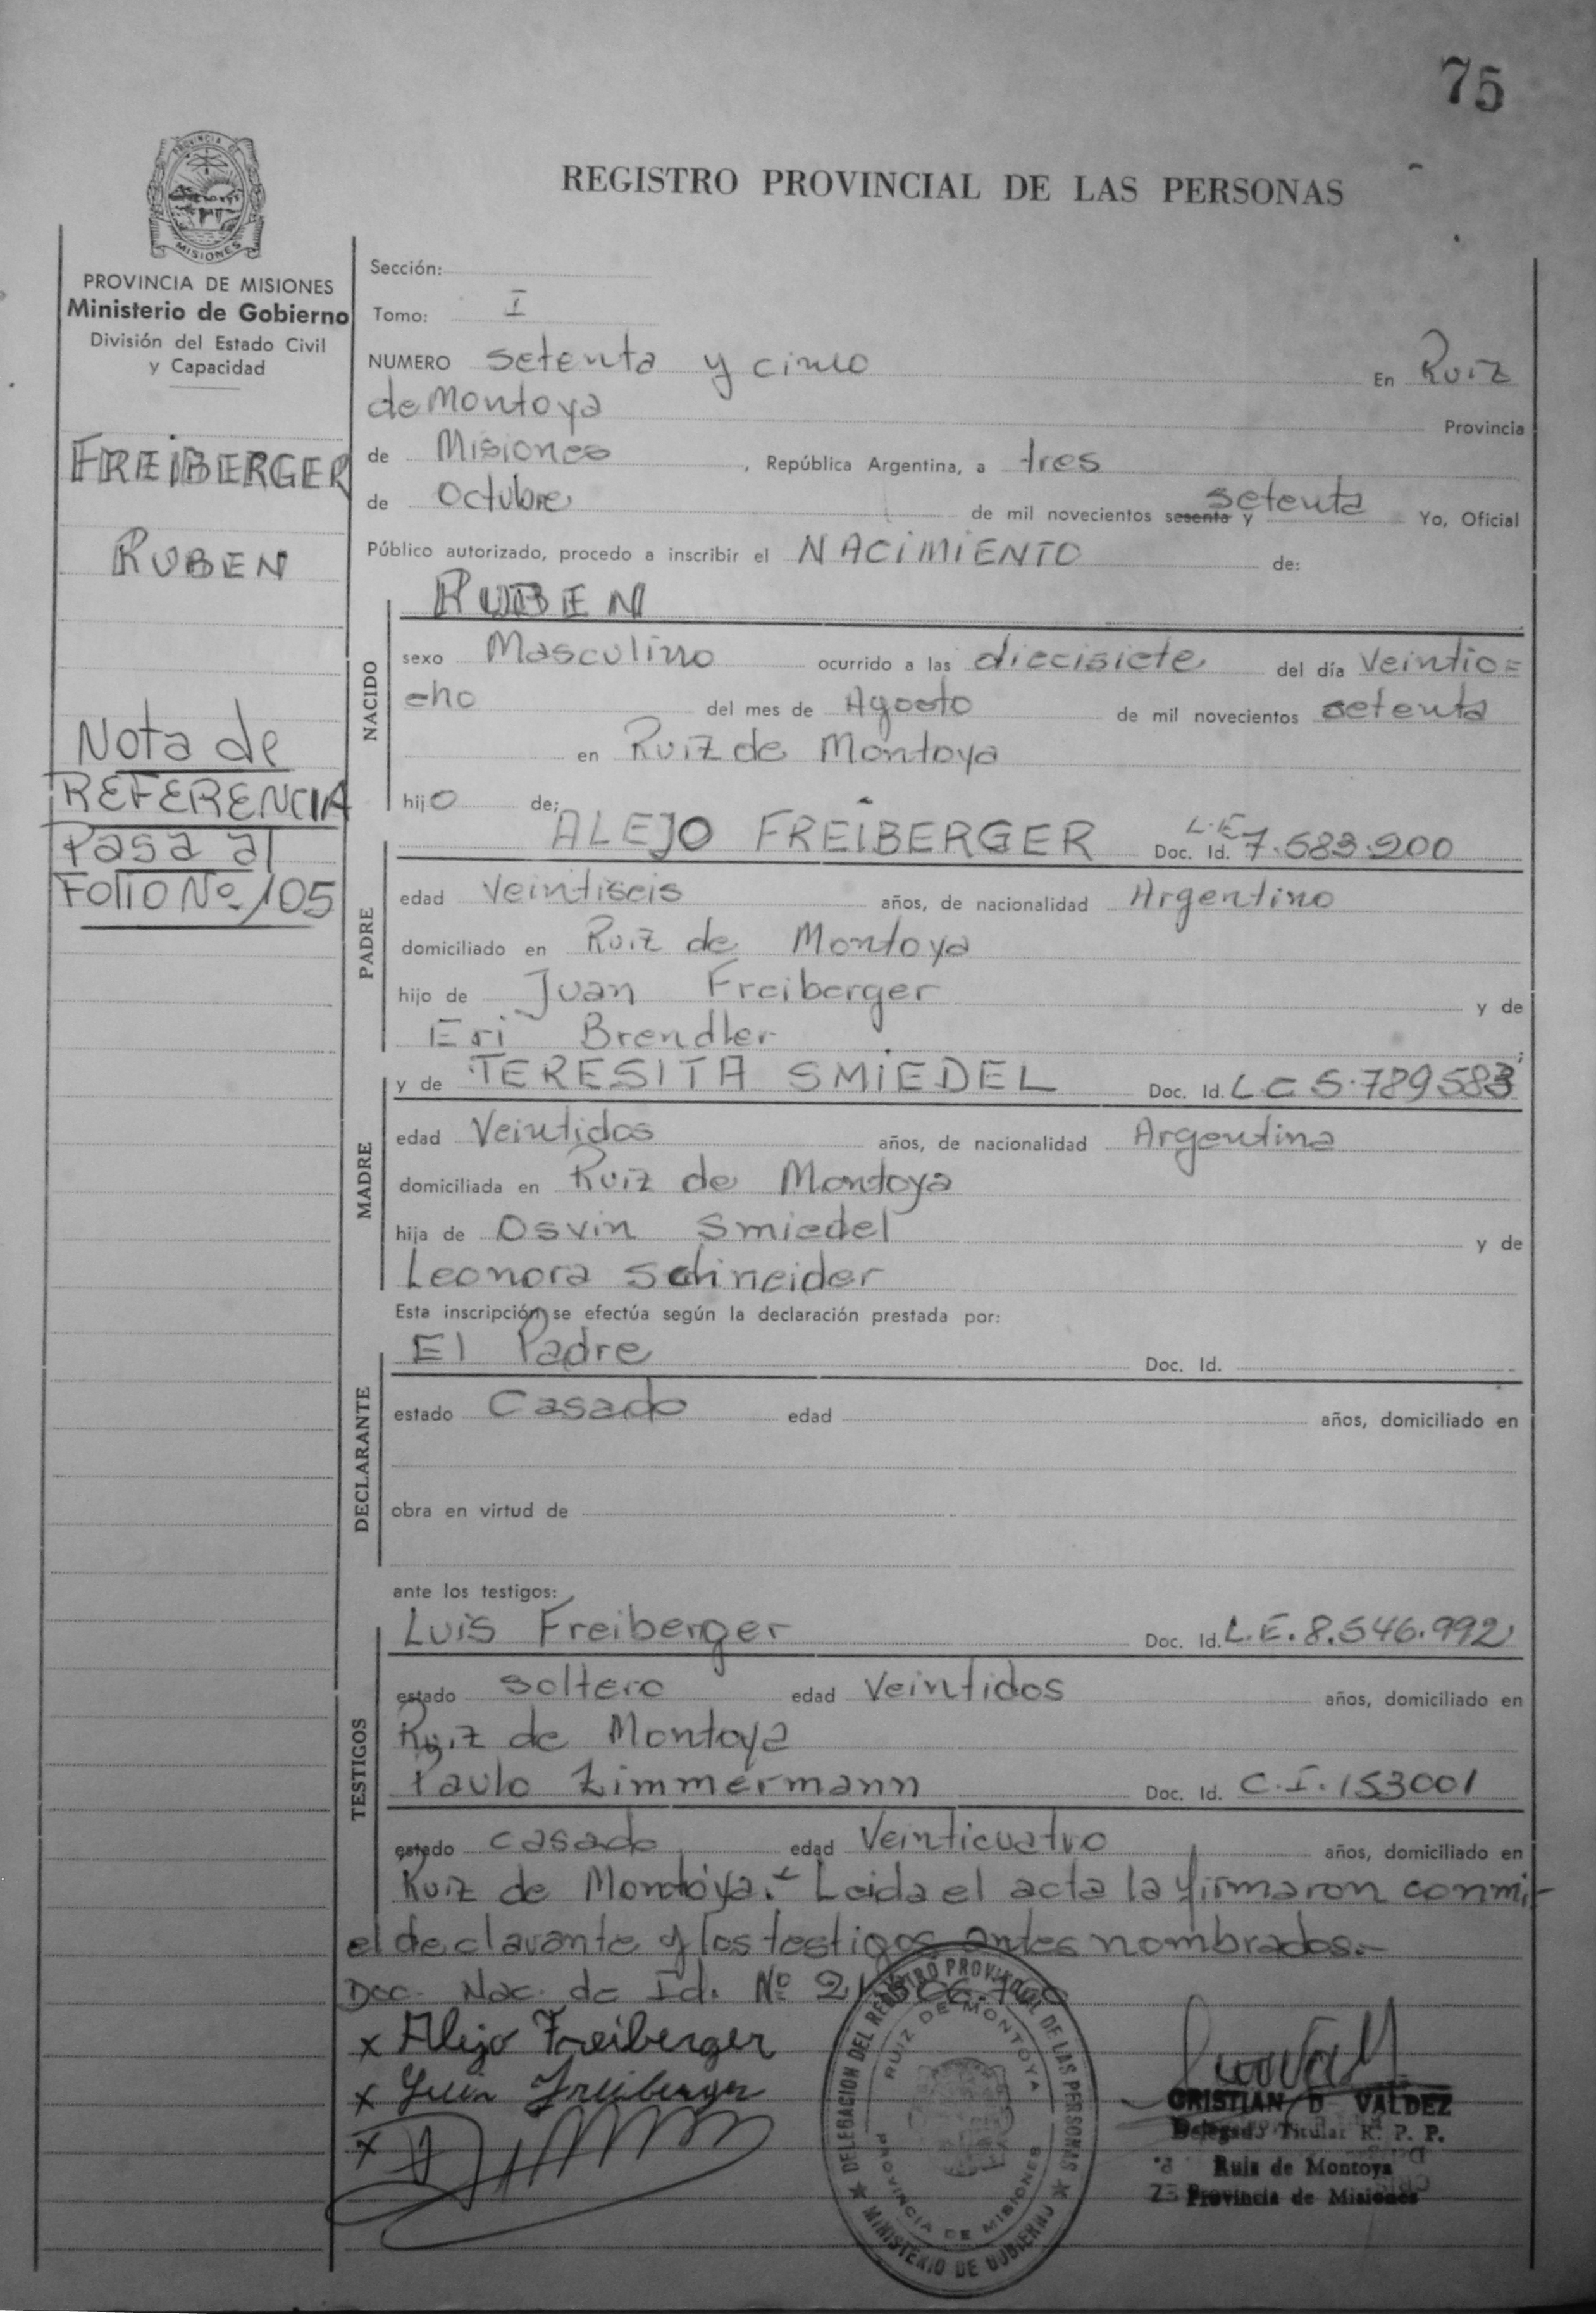 75
PROVINCIA DE
MISIONES
REGISTRO PROVINCIAL DE LAS PERSONAS
PROVINCIA DE MISIONES
Ministerio de Gobierno
División del Estado Civil
y Capacidad
FREIBERGER
RUBEN
Nota de
REFERENCIA
Pasa al
Folio Nº 105
Sección:
Tomo: I
NUMERO setenta y cinco En Ruiz
de Montoya Provincia
de Misiones, República Argentina, a tres
de Octubre de mil novecientos sesenta y setenta Yo, Oficial
Público autorizado, procedo a inscribir el NACIMIENTO de:
RUBEN
NACIDO
sexo Masculino ocurrido a las diecisiete del día Veintio=
cho del mes de Agosto de mil novecientos setenta
en Ruiz de Montoya
hijo de;
ALEJO FREIBERGER Doc. Id. L.E 7.583.200
PADRE
edad Veintiseis años, de nacionalidad Argentino
domiciliado en Ruiz de Montoya
hijo de Juan Freiberger y de
Eri Brendler
y de TERESITA SMIEDEL Doc. Id. L C 5.789583
MADRE
edad Veintidos años, de nacionalidad Argentina
domiciliada en Ruiz de Montoya
hija de Osvin Smiedel y de
Leonora Schneider
Esta inscripción se efectúa según la declaración prestada por:
El Padre Doc. Id.
DECLARANTE
estado Casado edad años, domiciliado en
obra en virtud de
ante los testigos:
Luis Freiberger Doc. Id. L.E. 8.546.992
TESTIGOS
estado soltero edad Veintidos años, domiciliado en
Ruiz de Montoya
Paulo Zimmermann Doc. Id. C.I. 153001
estado casado edad Veinticuatro años, domiciliado en
Ruiz de Montoya.- Leida el acta la firmaron conmi-
el declarante y los testigos antes nombrados.-
Doc. Nac. de Id. Nº
x Alejo Freiberger
x Luis Freiberger
x
DELEGACION DEL REGISTRO PROVINCIAL DE LAS PERSONAS
RUIZ DE MONTOYA
PROVINCIA DE MISIONES
MINISTERIO DE GOBIERNO
CRISTIAN D. VALDEZ
Delegado Titular R. P. P.
Ruiz de Montoya
Provincia de Misiones